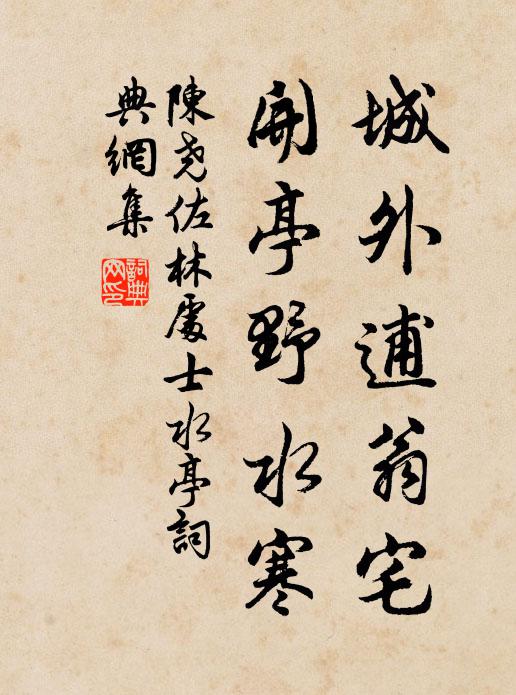 城外逋翁宅
開亭野水寒
陳堯佐林處士水亭詞
典網集
詞典
网印